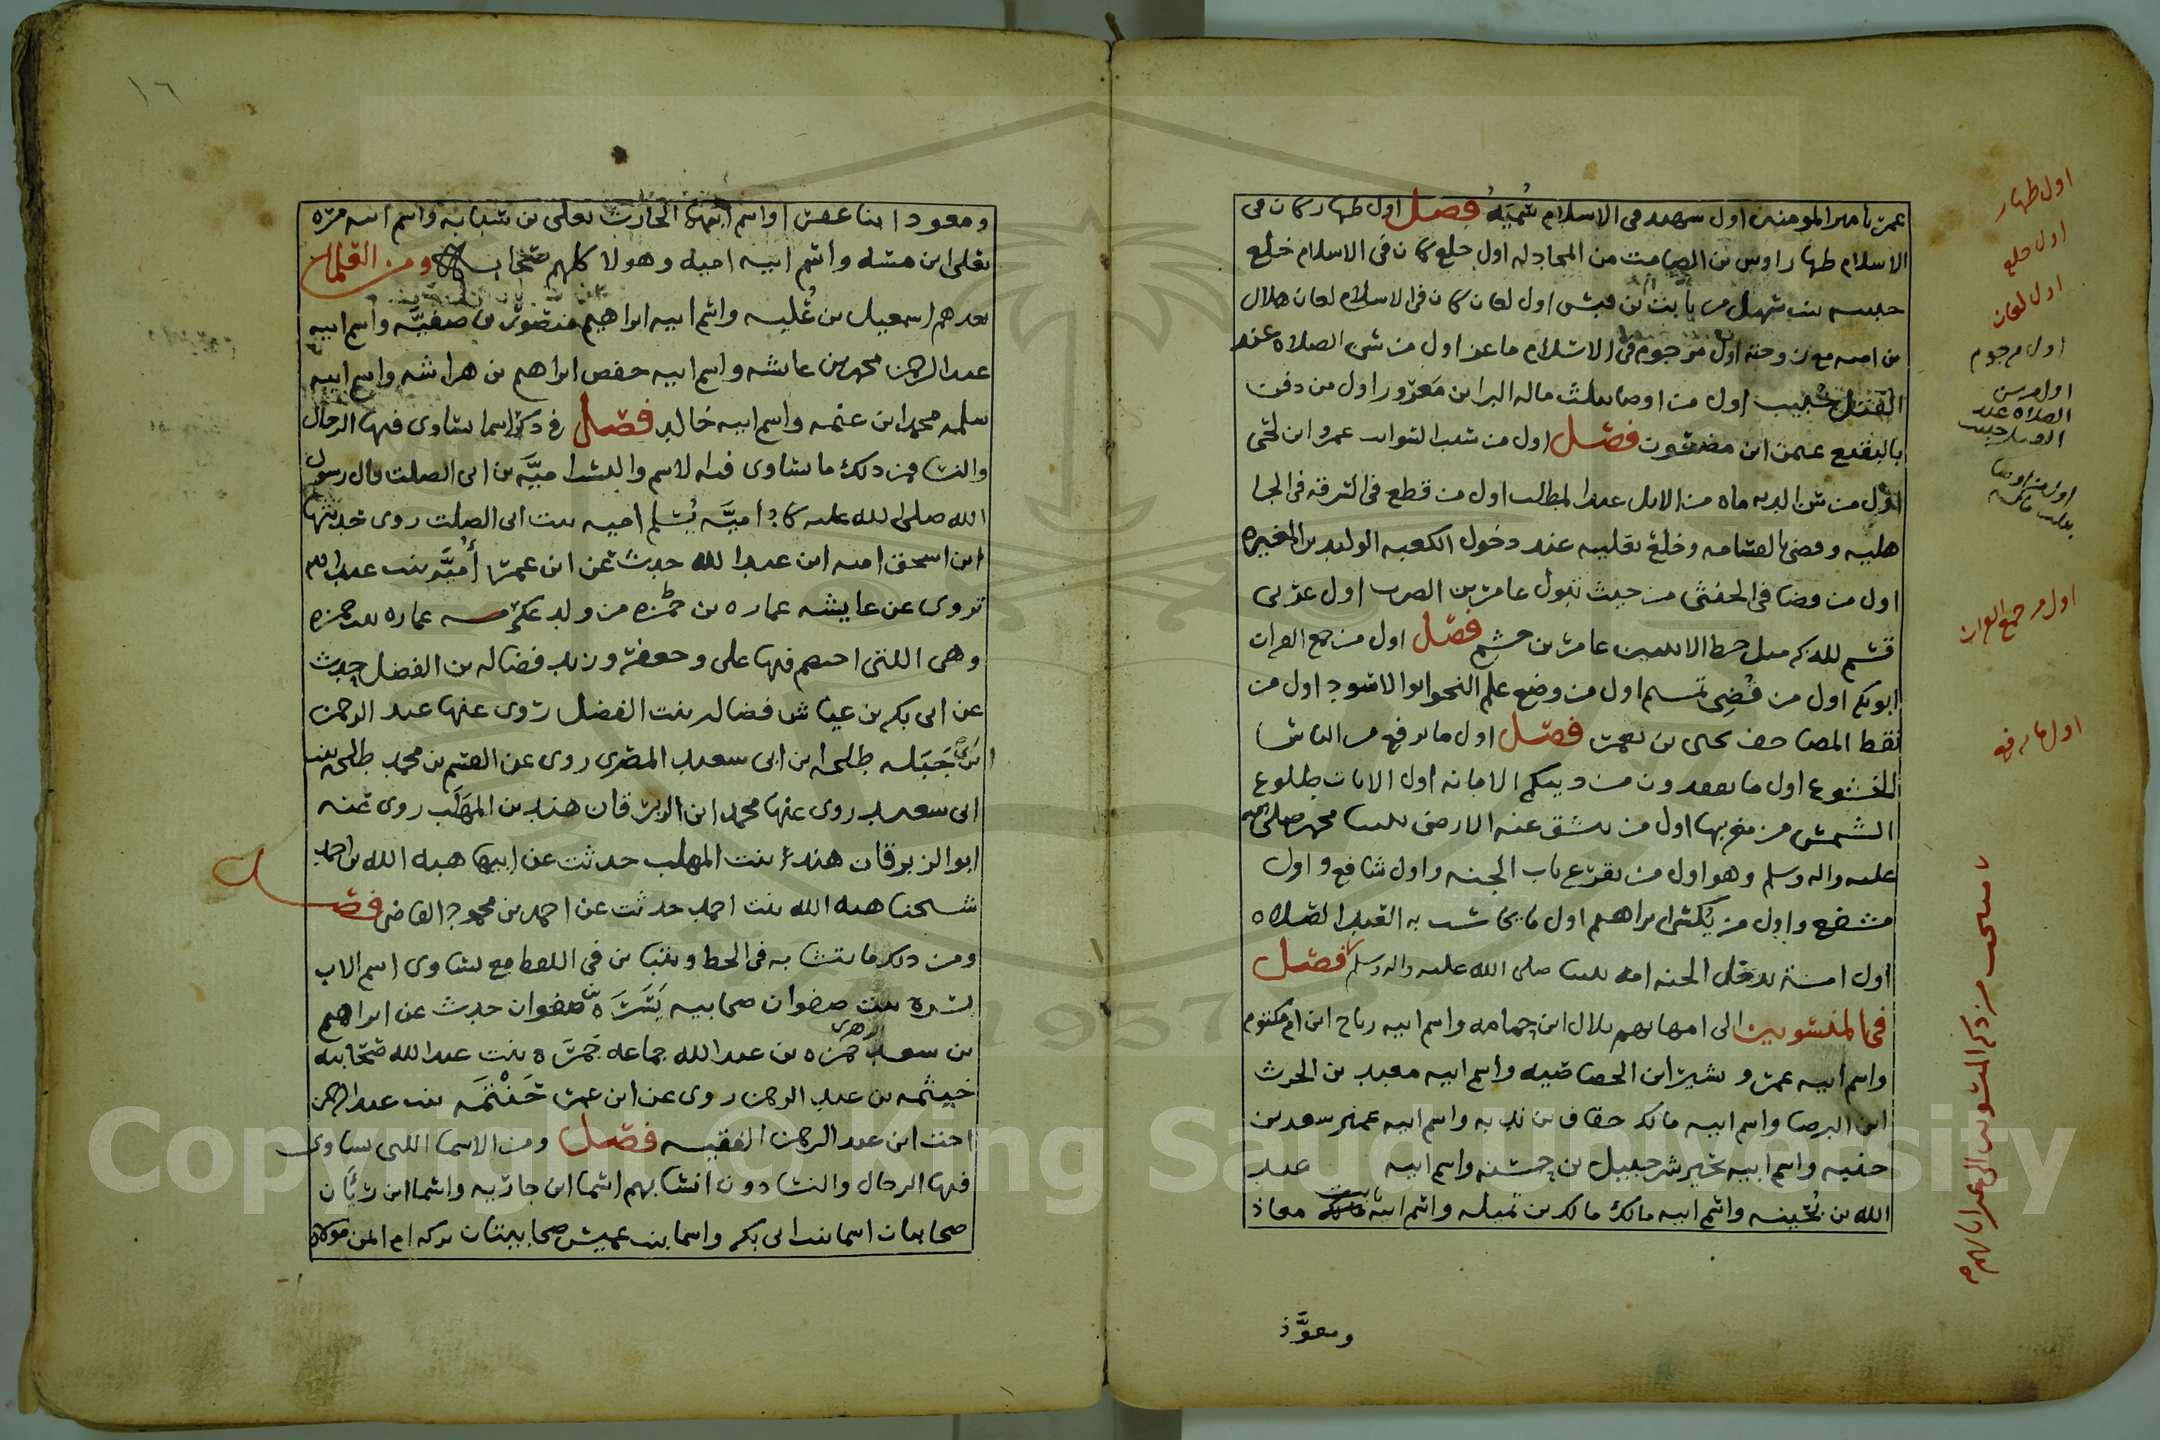 عمر بامير المومنين اول شهيد فى الاسلام سُميّه فصل اول ظهار كان فى
الاسلام ظهار اوس بن الصامت من المجادله اول خلع كان فى الاسلام خلع
حبيبه بنت سهيل من ثابت بن قيس اول لعان كان فى الاسلام لعان هلال
بن اميه مع زوجته اول مرجوم فى الاسلام ماعز اول من سن الصلاة عند
القتل خبيب اول من اوصا بثلث ماله البرا ابن معرور اول من دفن
بالبقيع عثمن ابن مضعون فصل اول من سيب السوايب عمرو ابن لحى
اول من سن الديه مايه من الابل عبد المطلب اول من قطع فى السرقه فى الجا
هليه وقضى بالقسامه وخلع نعليه عند دخول الكعبه الوليد بن المغيره
اول من قضا فى الخنثى من حيث يبول عامر بن الضرب اول عربى
قسم للذكر مثل حظ الانثيين عامر بن جشم فصل اول من جمع القران
ابو بكر اول من قصى تميم اول من وضع علم النحو ابو الاسود اول من
نقط المصاحف يحيى بن يعمر فصل اول ما يرفع من الناس
الخشوع اول ما تفقدون من دينكم الامانه اول الايات طلوع
الشمس من مغربها اول من تنشق عنه الارض نبينا محمد صلى الله
عليه واله وسلم وهو اول من يقرع باب الجنه واول شافع واول
مشفع واول من يكسى ابراهيم اول ما يحاسب به العبد الصلاه
اول امة تدخل الجنه امة نبينا صلى الله عليه واله وسلم فصل
فى المنسوبين الى امهاتهم بلال ابن حمامه واسم ابيه رباح ابن ام مكتوم
واسم ابيه عمر وبشير ابن الخصاصيه واسم ابيه معبد بن الحرث
ابن البرصا واسم ابيه مالك خفاف بن ندبه واسم ابيه عمير سعد بن
حبته واسم ابيه بحير شرحبيل بن حسنه واسم ابيه عبد
الله بن بُحينه واسم ابيه مالك مالك بن نميله واسم ابيه ثابت معاذ
ومعوَّذ
اول ظهار
اول خلع
اول لعان
اول مرجوم
اول من سن
الصلاة عند
القتل خبيب
اول من اوصا
بثلث ماله
اول من جمع القران
اول ما يرفع
من ذكر المنسوبين الى غير ابايهم
١٦
ومعوذ ابنا عفرا واسم ابيهما الحارث يعلى بن سيابه واسم ابيه مره
يعلى ابن منيه واسم ابيه اميه وهولا كلهم صحابه ومن العلما
بعدهم اسمعيل بن عُليه واسم ابيه ابراهيم منصور بن صفيّه واسم ابيه
عبد الرحمن محمد بن عايشه واسم ابيه حفص ابراهيم بن هراسه واسم ابيه
سلمه محمد ابن عثمه واسم ابيه خالد فصل فى ذكر اسما تساوى فيها الرجال
والنسا فمن ذلك ما تساوى فيه الاسم والنسب اميَّه بن ابى الصلت قال رسول
الله صلى الله عليه كاد اميَّه يُسلم اميه بنت ابى الصلت روى حديثها
ابن اسحق اميه ابن عبد الله حدث عن ابن عمر أُميَّه بنت عبد الله
تروى عن عايشه عماره بن حمزه من ولد عكرمه عماره بنت حمزه
وهى اللتى اختصم فيها على وجعفر وزيد فضاله بن الفضل حدث
عن ابى بكر بن عياش فضاله بنت الفضل روى عنها عبد الرحمن
ابن جَبَله طلحه ابن ابى سعيد المصرى روى عن القسم بن محمد طلحه بنت
ابى سعيد روى عنها محمد ابن الزبرقان هند بن المهلَّب روى عنه
ابو الزبرقان هند بنت المهلب حدثت عن ابيها هبه الله بن احمد
شيخنا هبه الله بنت احمد حدثت عن احمد بن محمود القاضى فصل
ومن ذلك ما يتشابه فى الخط ويتباين فى اللفظ مع تساوى اسم الاب
بسرة بنت صفوان صحابيه يَسَرَة بن صفوان حدث عن ابراهيم
بن سعد الزهرى حَمْزه بن عبد الله جماعه حَمرَه بنت عبد الله صحابيه
خيثمه بن عبد الرحمن روى عن ابن عمر حَنْتمَه بنت عبد الرحمن
اخت ابن عبد الرحمن الفقيه فصل ومن الاسما اللتى تساوى
فيها الرجال والنسا دون انسابهم اسما ابن جاريه واسما ابن رئاب
صحابيان اسما بنت ابى بكر واسما بنت عميس صحابيتان بركه ام ايمن مولاة